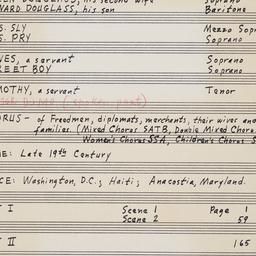 his second wife Soprano
WARD DOUGLASS, his son Baritone
S. SLY Mezzo Sop
S. PRY Soprano
NES, a servant Soprano
REET BOY Soprano
MOTHY, a servant Tenor
(spoken part)
ORUS - of Freedmen, diplomats, merchants, their wives and
families. (Mixed Chorus SATB, Double Mixed Chorus
Women's Chorus SSA, Children's Chorus S
E: Late 19th Century
CE: Washington, D.C.; Haiti; Anacostia, Maryland.
T I Scene 1 Page 1
Scene 2 59
T II 165